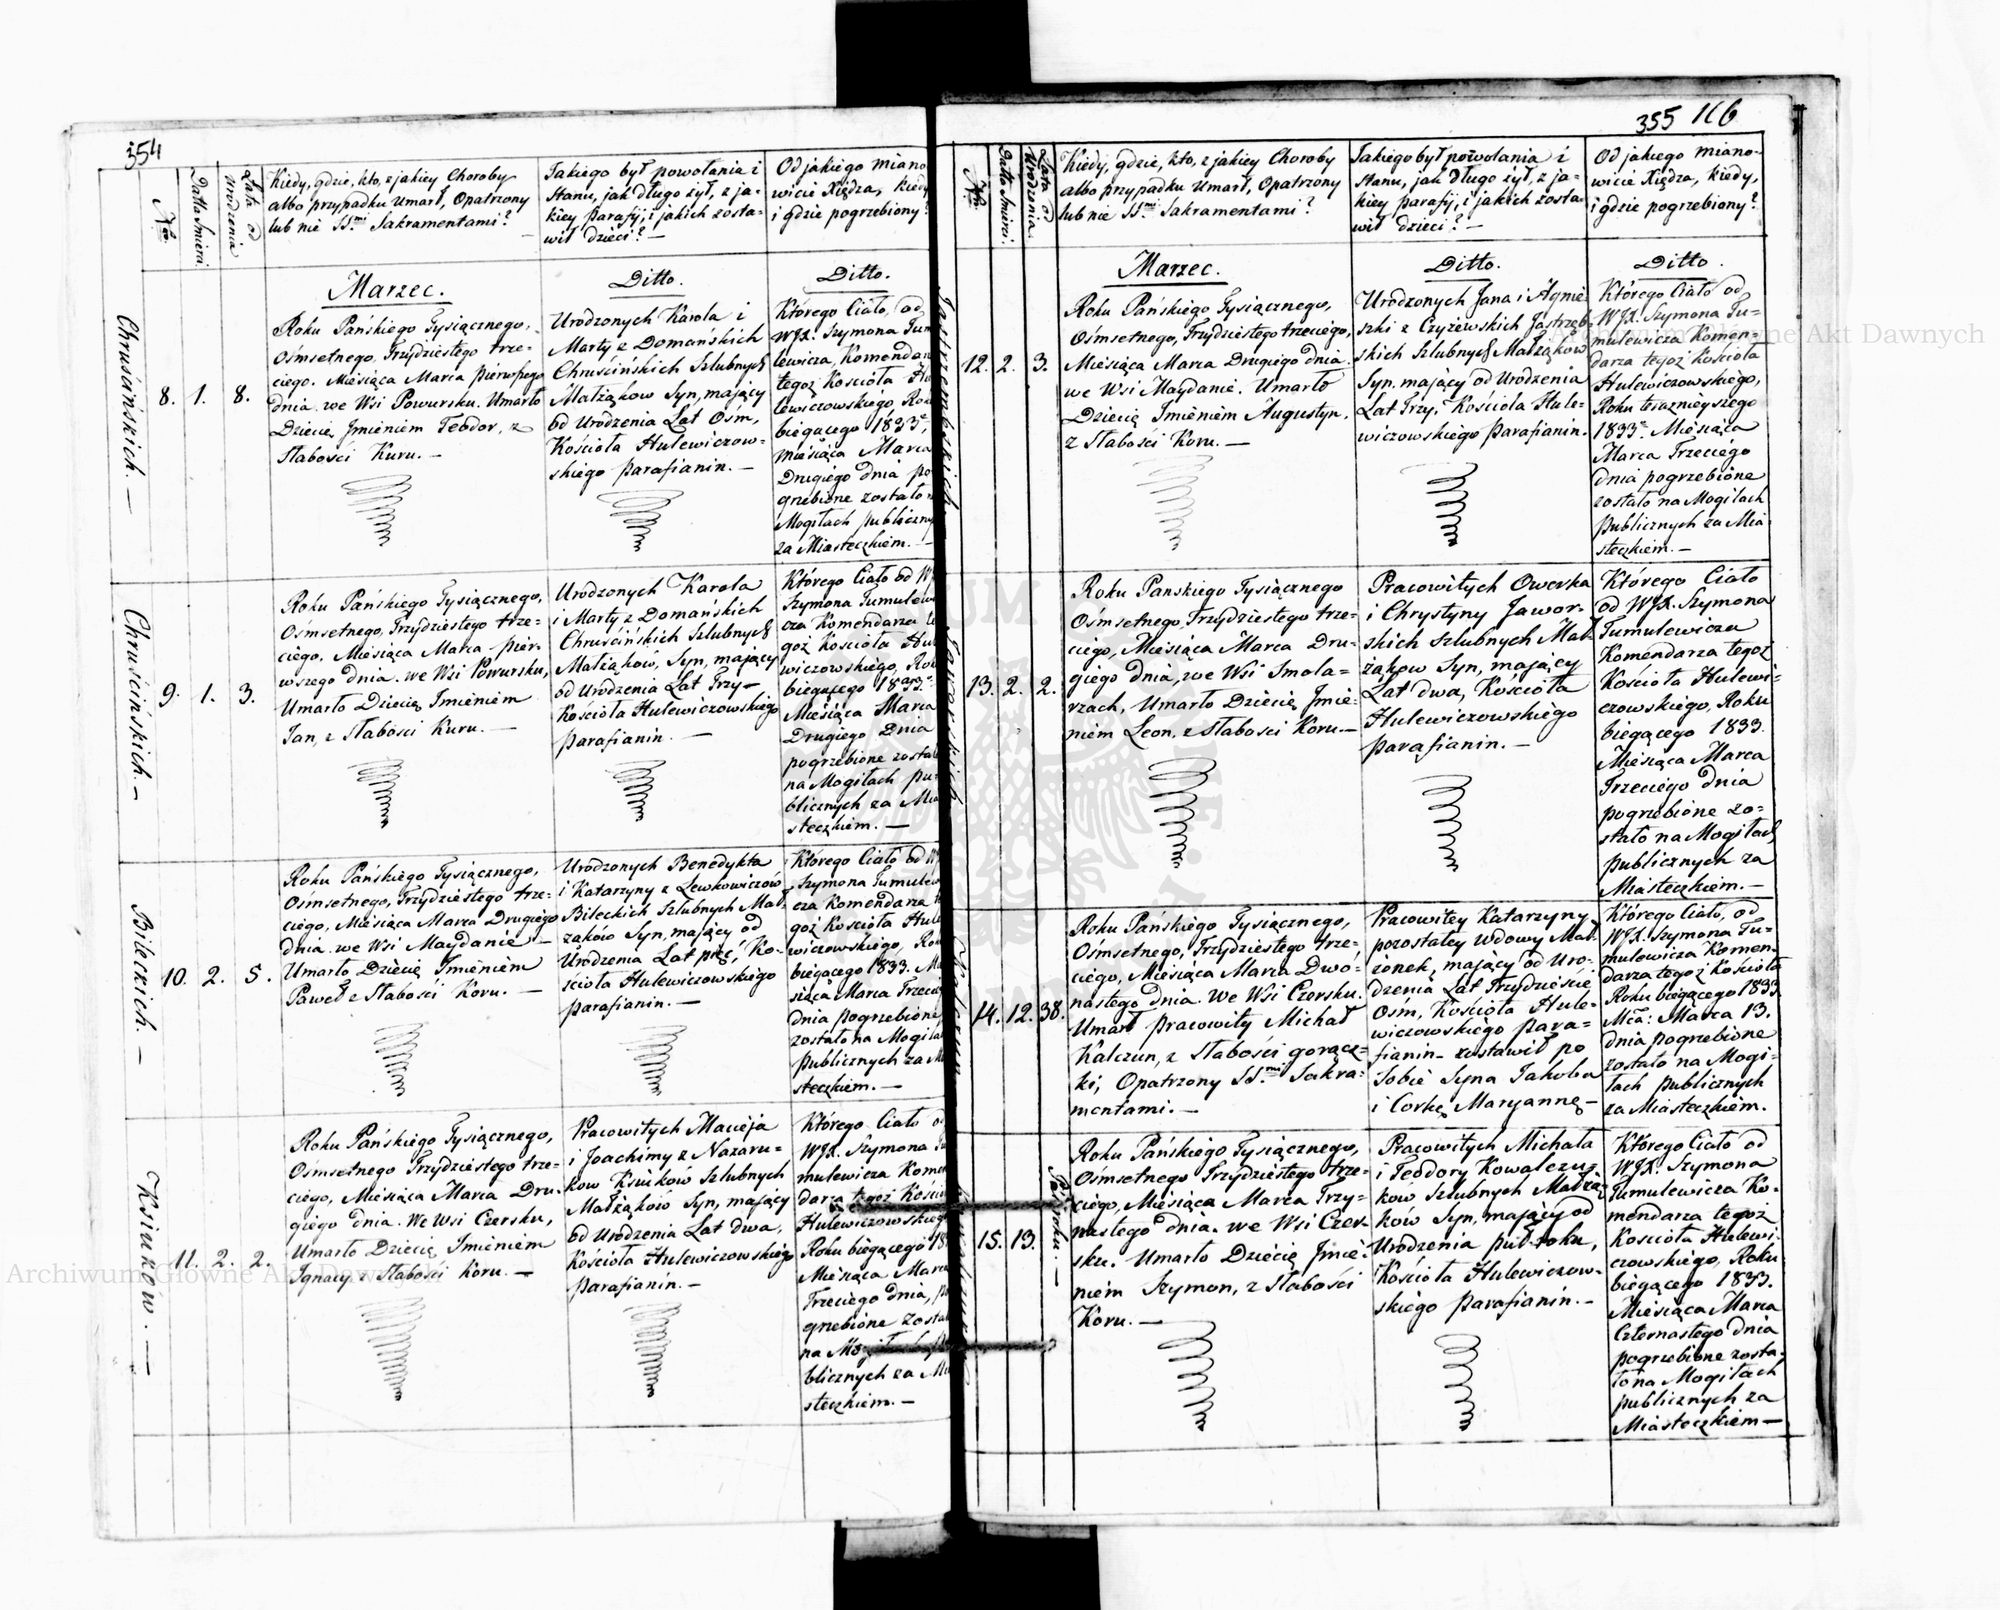 354
Nro
Datta Śmierci.
Lata od Urodzenia
Kiedy, gdzie, kto, z jakiey Choroby
albo przypadku Umarł, Opatrzony
lub nie SS.mi Sakramentami?
Jakiego był powołania i
Stanu, jak długo żył, z ja-
kiey parafij, i jakich zosta-
wił dzieci? —
Od jakiego miano
wicie Xiędza, kiedy
i gdzie pogrzebiony?
Marzec.
Ditto.
Ditto.
Chruścińskich. —
8. 1. 8.
Roku Pańskiego Tysiącznego,
Ośmsetnego, Trzydziestego trze-
ciego. Miesiąca Marca pierwszego
dnia. we Wsi Powursku. Umarło
Dziecię Jmieniem Teodor, z
Słabości Kuru. —
Urodzonych Karola i
Marty z Domańskich
Chruścińskich Szlubnych
Małżąkow Syn, mający
od Urodzenia Lat Ośm,
Kościoła Hulewiczow-
skiego parafianin. —
Którego Ciało, od
WJX. Szymona Tum
lewicza, Komendar
tegoż Kościoła Hu
lewiczowskiego Rok
biegącego 1833o,
miesiąca Marca
Drugiego dnia po
grzebione zostało n
Mogiłach publiczny
za Miasteczkiem. —
Chruścińskich. —
9. 1. 3.
Roku Pańskiego Tysiącznego,
Ośmsetnego, Trzydziestego trze-
ciego, Miesiąca Marca pier-
wszego dnia. we Wsi Powursku,
Umarło Dziecię Imieniem
Jan, z Słabości Kuru. —
Urodzonych Karola
i Marty z Domańskich
Chruścińskich Szlubnych
Małżąków, Syn, mający
od Urodzenia Lat Trzy —
Kościoła Hulewiczowskiego
parafianin. —
Którego Ciało od WJX
Szymona Tumulewi
cza Komendarza te
goż Kościoła Hul
wiczowskiego, Rok
biegącego 1833o
Miesiąca Marca
Drugiego Dnia
pogrzebione zostało
na Mogiłach pu-
blicznych za Mia
steczkiem. —
Bileckich. —
10. 2. 5.
Roku Pańskiego Tysiącznego,
Ośmsetnego, Trzydziestego trze-
ciego, Miesiąca Marca Drugiego
dnia. we Wsi Maydanie —
Umarło Dziecię Imieniem
Paweł z Słabości Koru. —
Urodzonych Benedykta
i Katarzyny z Lewkowiczów
Bileckich Szlubnych Mał
żaków Syn, mający od
Urodzenia Lat pięć, Ko-
ścioła Hulewiczowskiego
parafianin. —
Którego Ciało od W
Szymona Tumulew
cza Komendarza t
goż Kościoła Hule
wiczowskiego, Rok
biegącego 1833. Mie
siąca Marca Trzecie
dnia pogrzebione
zostało na Mogiła
publicznych za M
steczkiem. —
Ksiuków. —
11. 2. 2.
Roku Pańskiego Tysiącznego,
Ośmsetnego Trzydziestego trze-
ciego, Miesiąca Marca Dru-
giego dnia. We Wsi Czersku,
Umarło Dziecię Imieniem
Ignacy z Słabości Koru. —
Pracowitych Macieja
i Joachimy z Nazaru-
kow Ksiuków Szlubnych
Małżąków Syn, mający
od Urodzenia Lat dwa,
Kościoła Hulewiczowskiego
parafianin. —
Którego Ciało od
WJX. Szymona Tu
mulewicza Komen
darza tegoż Kościo
Hulewiczowskiego
Roku biegącego 18
Miesiąca Marca
Trzeciego dnia, po
grzebione zosta
na
blicznych za Mia
steczkiem. —
355 166
Nro
Datta Śmierci.
Lata od Urodzenia.
Kiedy, gdzie, kto, z jakiey Choroby
albo przypadku Umarł, Opatrzony
lub nie SS.mi Sakramentami?
Jakiego był powołania i
Stanu, jak długo żył, z ja-
kiey parafij, i jakich zosta-
wił dzieci? —
Od jakiego miano-
wicie Xiędza, kiedy,
i gdzie pogrzebiony?
Marzec.
Ditto.
Ditto.
Jastrzembskich.
12. 2. 3.
Roku Pańskiego Tysiącznego,
Ośmsetnego, Trzydziestego trzeciego,
Miesiąca Marca Drugiego dnia.
we Wsi Maydanie. Umarło
Dziecię Imieniem Augustyn.
z Słabości Koru. —
Urodzonych Jana i Agnie-
szki z Czyżewskich Jastrzęb-
skich Szlubnych Małżąkow
Syn. mający od Urodzenia
Lat Trzy. Kościoła Hule-
wiczowskiego Parafianin.
Którego Ciało od
WJX. Szymona Tu-
mulewicza Komen-
darza tegoż Kościoła
Hulewiczowskiego,
Roku teraznieyszego
1833o. Miesiąca
Marca Trzeciego
dnia pogrzebione
zostało na Mogiłach
publicznych za Mia-
steczkiem. —
Jaworskich
13. 2. 2.
Roku Panskiego Tysiącznego
Ośmsetnego, Trzydziestego trze-
ciego, Miesiąca Marca Dru-
giego dnia, we Wsi Smola-
rzach, Umarło Dziecię Jmie-
niem Leon, z Słabości Koru. —
Pracowitych Owerka
i Chrystyny Jawor-
skich Szlubnych Mał-
żąkow Syn, mający
Lat dwa, Kościoła
Hulewiczowskiego
parafianin. —
Którego Ciało
od WJX. Szymona
Tumulewicza
Komendarza tegoż
Kościoła Hulewi-
czowskiego, Roku
biegącego 1833.
Miesiąca Marca
Trzeciego dnia
pogrzebione zo-
stało na Mogiłach
publicznych za
Miasteczkiem. —
14. 12. 38.
Roku Pańskiego Tysiącznego,
Ośmsetnego, Trzydziestego trze-
ciego, Miesiąca Marca Dwó-
nastego dnia. We Wsi Czersku.
Umarł pracowity Michał
Kalczun, z Słabości gorącz-
ki, Opatrzony SS.mi Sakra-
mentami. —
Pracowitey Katarzyny
pozostałey wdowy Mał-
żonek, mający od Uro-
dzenia Lat Trzydzieście
Ośm, Kościoła Hule-
wiczowskiego para-
fianin — zostawił po
Sobie Syna Jakoba
i Corkę Maryannę —
Którego Ciało, od
WJX. Szymona Tu-
mulewicza Komen-
darza tegoż Kościoła
Roku biegącego 1833.
Mca: Marca 13.
dnia pogrzebione
zostało na Mogi-
łach publicznych
za Miasteczkiem.
15. 13.
pół roku. —
Roku Pańskiego Tysiącznego,
Ośmsetnego Trzydziestego trze-
ciego, Miesiąca Marca Trzy-
nastego dnia. we Wsi Czer-
sku. Umarło Dziecię Jmie-
niem Szymon, z Słabości
Koru. —
Pracowitych Michała
i Teodory Kowalczu-
kow Szlubnych Małżą-
ków Syn, mający od
Urodzenia puł roku,
Kościoła Hulewiczow-
skiego parafianin. —
Którego Ciało od
WJX. Szymona
Tumulewicza Ko-
mendarza tegoż
Kościoła Hulewi-
czowskiego, Roku
biegącego 1833.
Miesiąca Marca
Czternastego dnia
pogrzebione zosta-
ło na Mogiłach
publicznych za
Miasteczkiem —
Archiwum Główne Akt Dawnych
Archiwum Główne Akt Dawnych